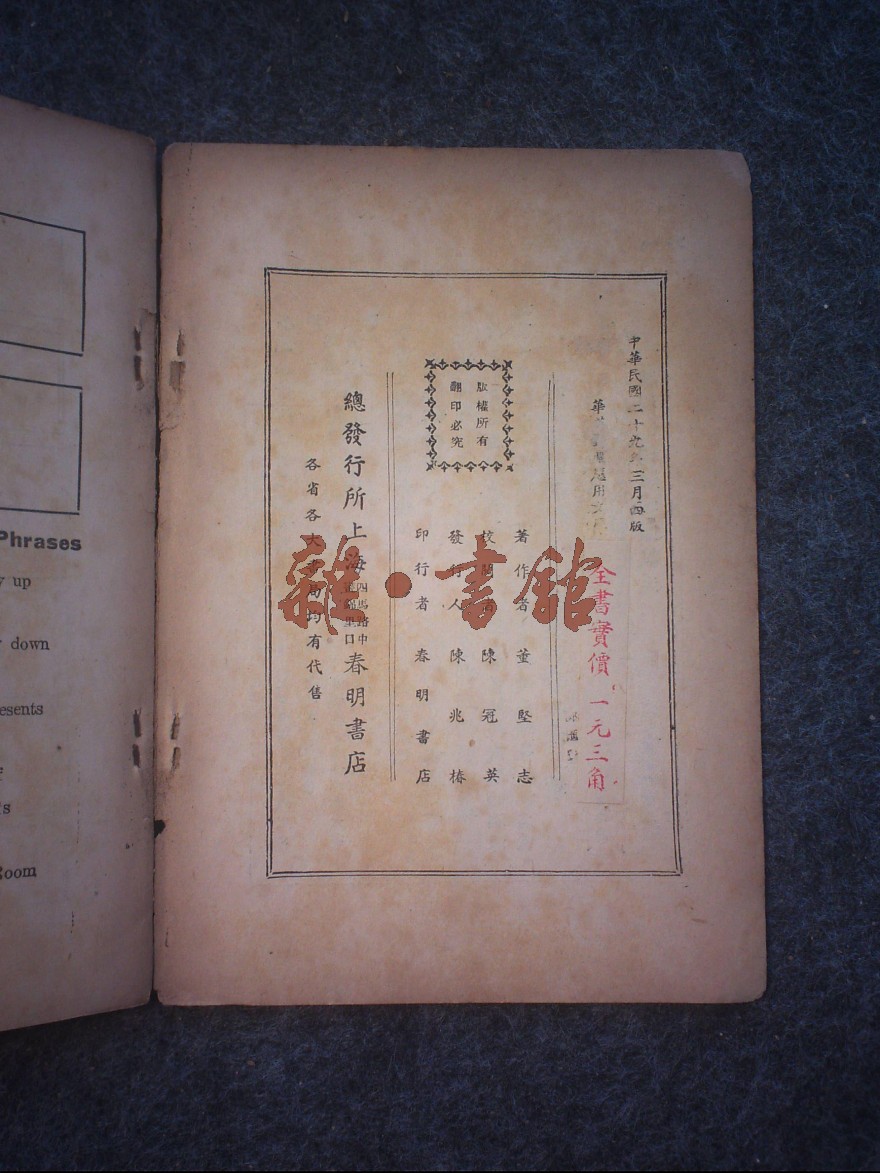 中華民國二十九年三月四版
華
用
全書實價一元三角
著作者 董堅志
校閱者 陳冠英
發行人 陳兆椿
印行者 春明書店
版權所有
翻印必究
總發行所上海四馬路中
里口春明書店
各省各大書局均有代售
雜·書館
Phrases
up
down
esents
s
Room